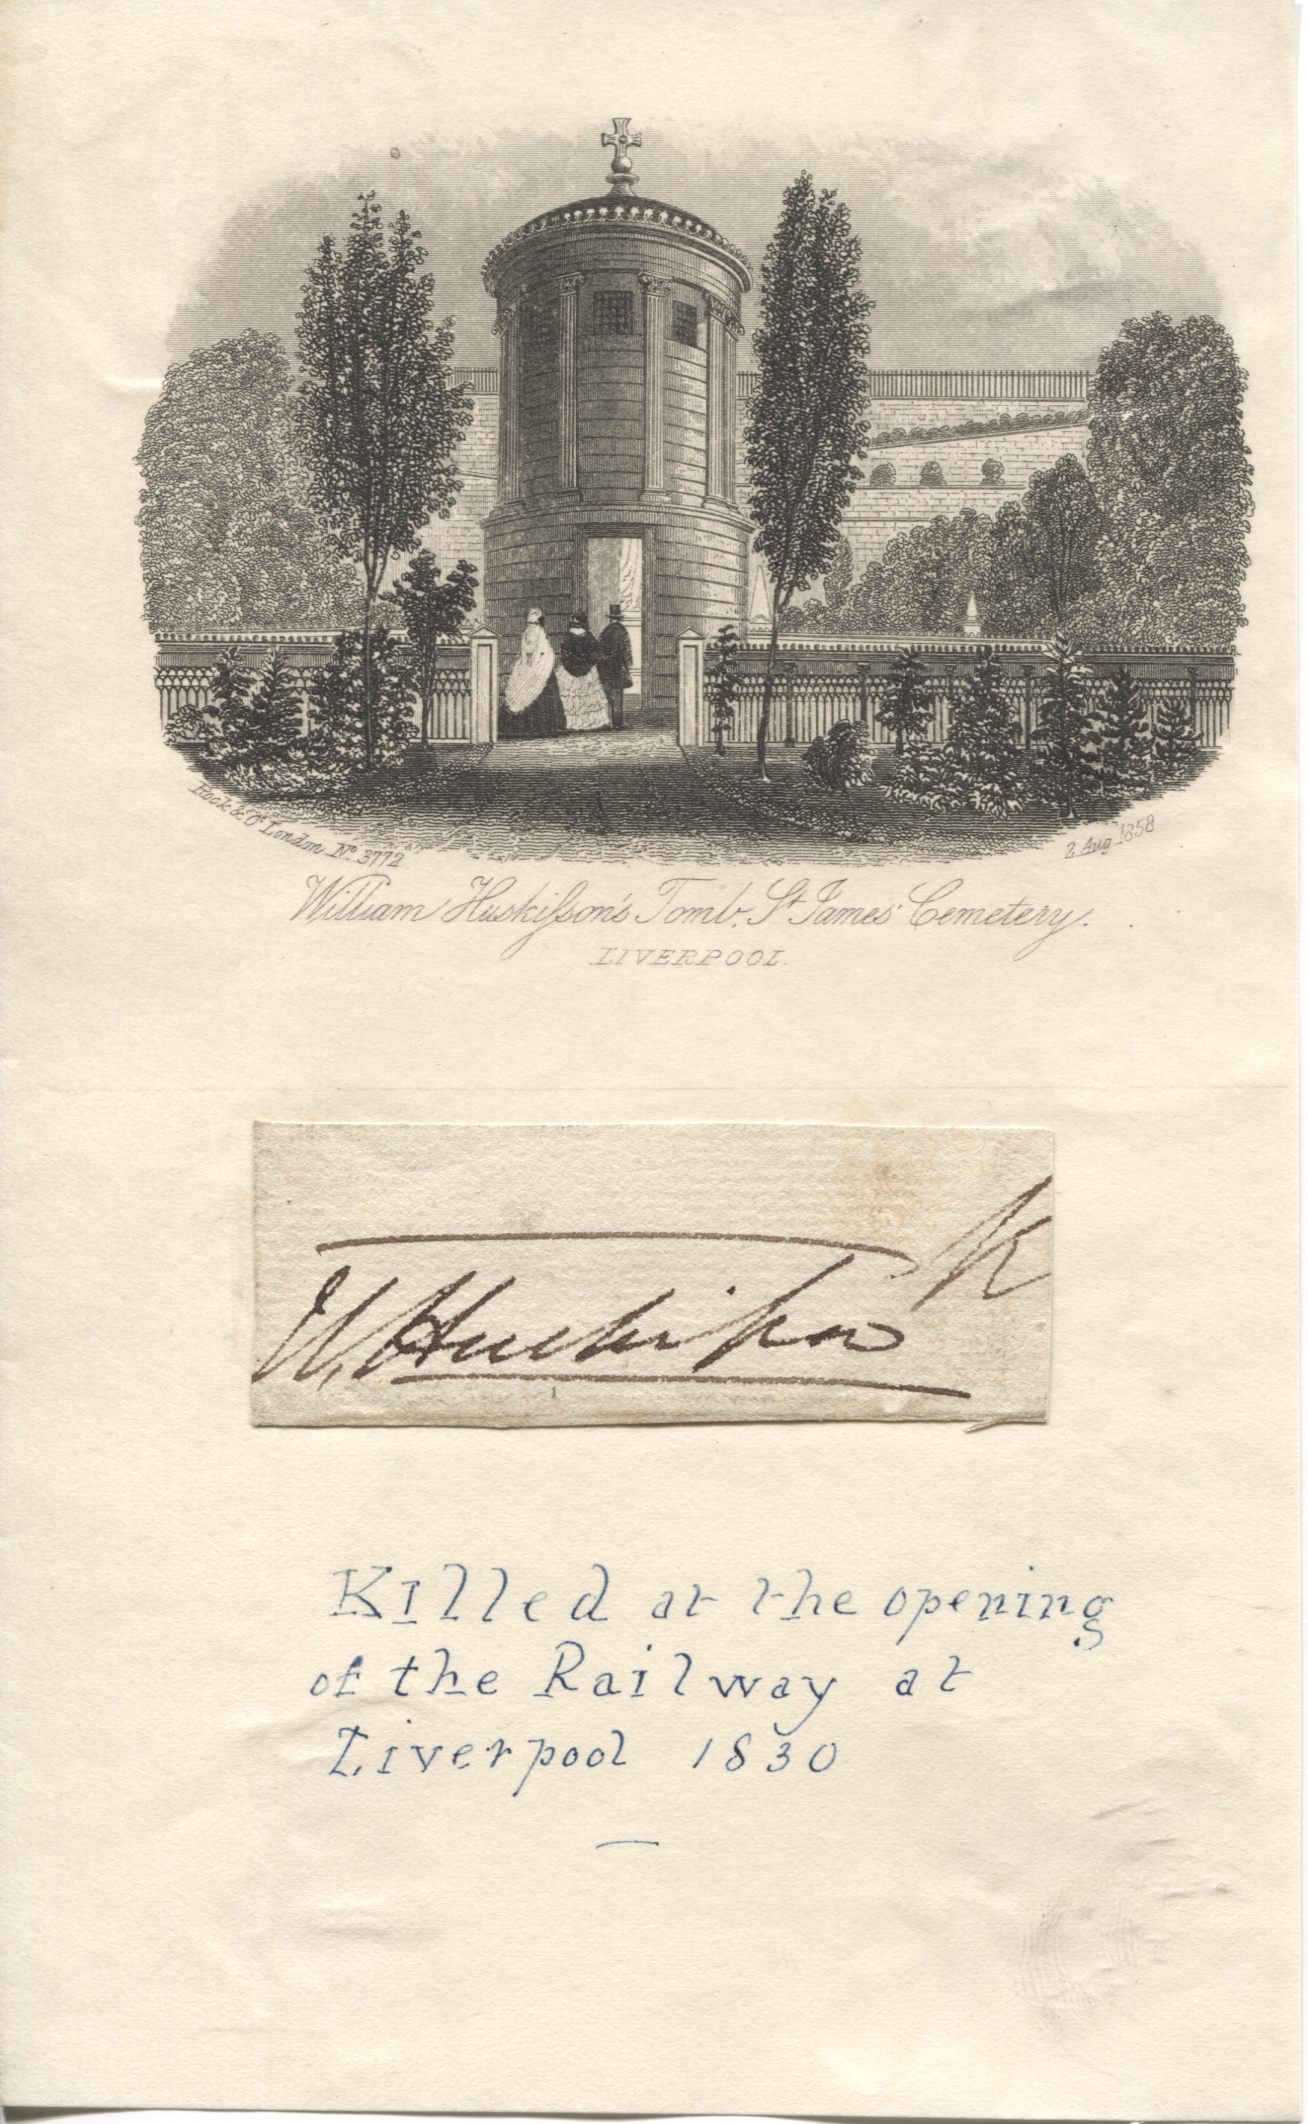 Rock & Co. London No. 3772
2 Aug 1858
William Huskiſson's Tomb, St James' Cemetery.
LIVERPOOL.
W. Huskiſson
Killed at the opening
of the Railway at
Liverpool 1830